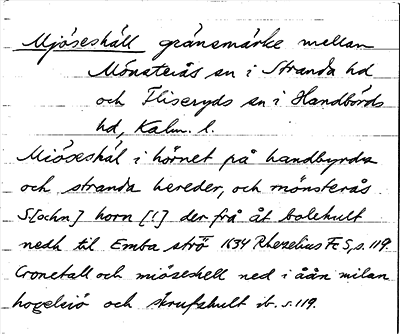 Mjöseshäll gränsmärke mellan
Mönsterås sn i Stranda hd
och Fliseryds sn i Handbörds
hd, Kalm. l.
Miöseshäl i hörnet på handbyrda
och stranda hereder, och mönsterås
S[ochn] horn [!] der frå åt bolehult
nedh til Emba strö 1634 Rhezelius Fc 5, s. 119.
Cronetall och miöseshell ned i åån milan
hogelsiö och skrufshult ib. s. 119.